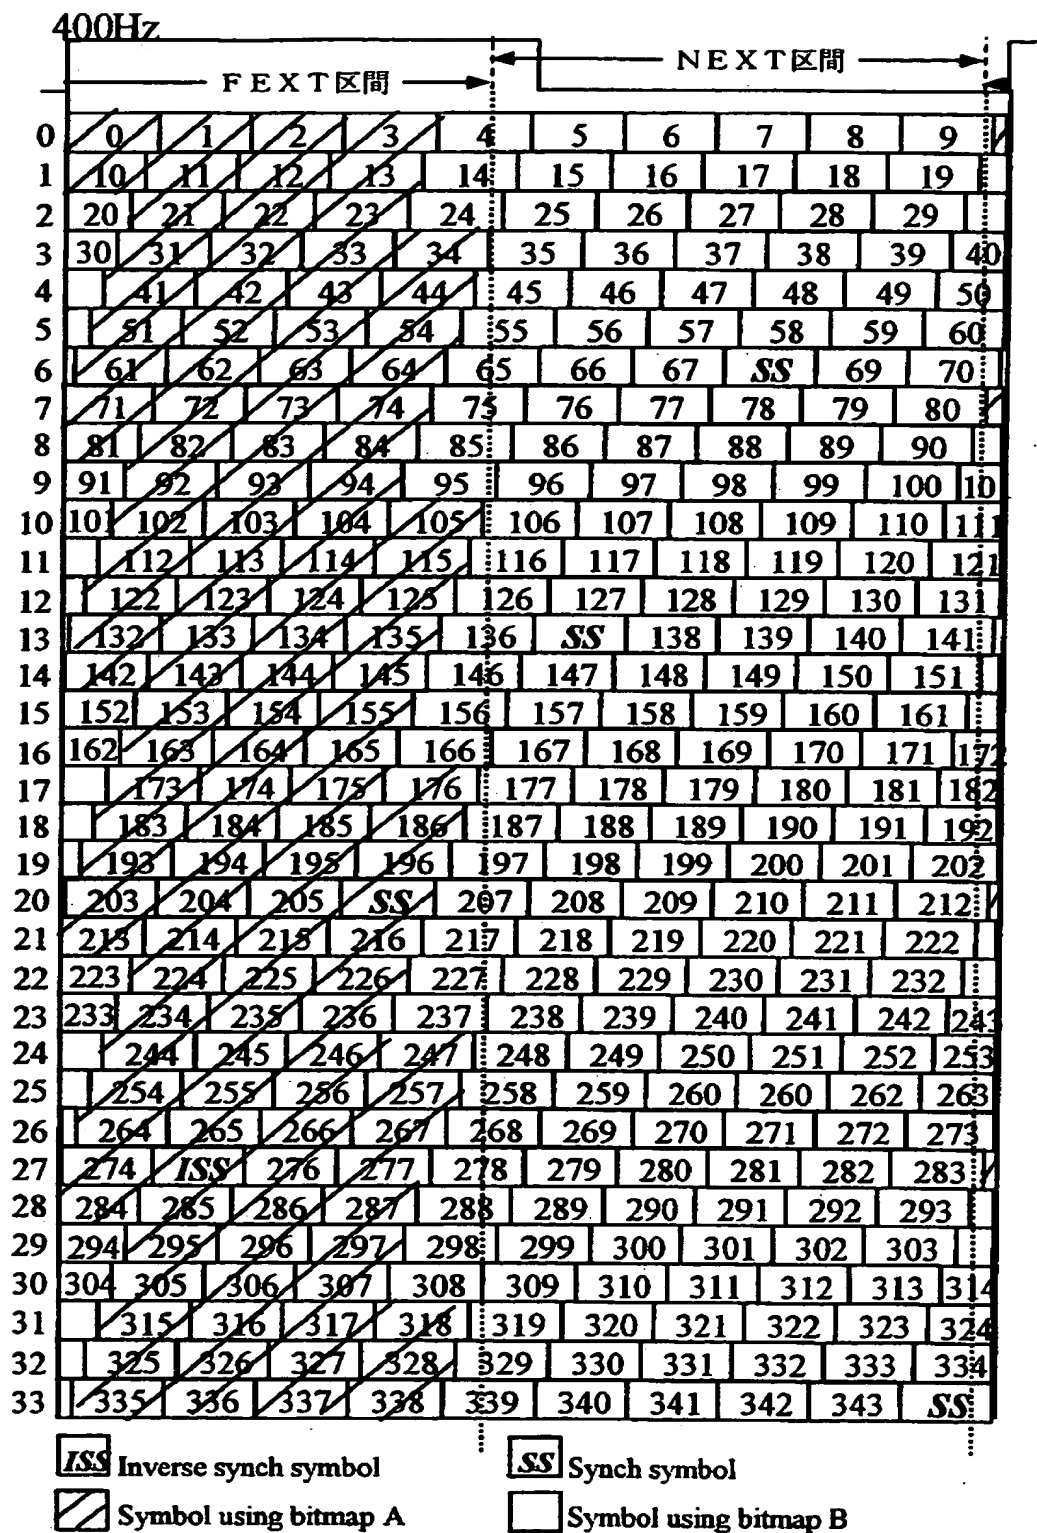 400Hz
FEXT区間 NEXT区間
0 0 1 2 3 4 5 6 7 8 9
1 10 11 12 13 14 15 16 17 18 19
2 20 21 22 23 24 25 26 27 28 29
3 30 31 32 33 34 35 36 37 38 39 40
4 41 42 43 44 45 46 47 48 49 50
5 51 52 53 54 55 56 57 58 59 60
6 61 62 63 64 65 66 67 SS 69 70
7 71 72 73 74 75 76 77 78 79 80
8 81 82 83 84 85 86 87 88 89 90
9 91 92 93 94 95 96 97 98 99 100 10
10 101 102 103 104 105 106 107 108 109 110 111
11 112 113 114 115 116 117 118 119 120 121
12 122 123 124 125 126 127 128 129 130 131
13 132 133 134 135 136 SS 138 139 140 141
14 142 143 144 145 146 147 148 149 150 151
15 152 153 154 155 156 157 158 159 160 161
16 162 163 164 165 166 167 168 169 170 171 172
17 173 174 175 176 177 178 179 180 181 182
18 183 184 185 186 187 188 189 190 191 192
19 193 194 195 196 197 198 199 200 201 202
20 203 204 205 SS 207 208 209 210 211 212
21 213 214 215 216 217 218 219 220 221 222
22 223 224 225 226 227 228 229 230 231 232
23 233 234 235 236 237 238 239 240 241 242 243
24 244 245 246 247 248 249 250 251 252 253
25 254 255 256 257 258 259 260 260 262 263
26 264 265 266 267 268 269 270 271 272 273
27 274 ISS 276 277 278 279 280 281 282 283
28 284 285 286 287 288 289 290 291 292 293
29 294 295 296 297 298 299 300 301 302 303
30 304 305 306 307 308 309 310 311 312 313 314
31 315 316 317 318 319 320 321 322 323 324
32 325 326 327 328 329 330 331 332 333 334
33 335 336 337 338 339 340 341 342 343 SS
ISS Inverse synch symbol SS Synch symbol
Symbol using bitmap A Symbol using bitmap B